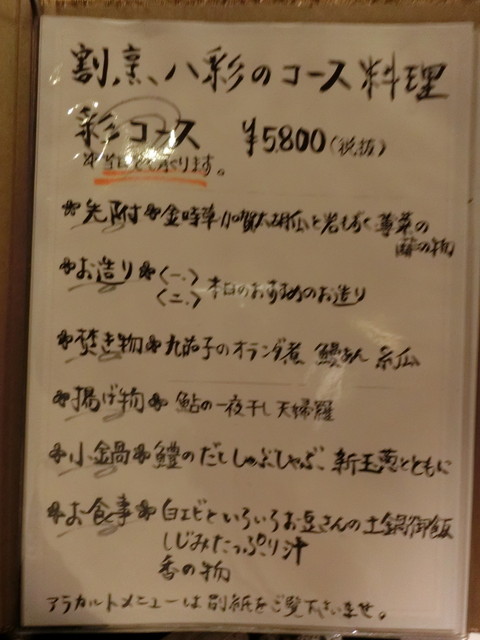 割烹 八彩のコース料理
彩コース ¥5,800(税抜)
※当日でも承ります。
先附 金時草 加賀太胡瓜と岩もずく 蓴菜の
酢の物
お造り 〈一、〉
〈二、〉 本日のおすすめのお造り
焚き物 丸茄子のオランダ煮 鰻あん 糸瓜
揚げ物 鮎の一夜干し天婦羅
小鍋 鱧のだししゃぶしゃぶ、新玉葱とともに
お食事 白エビといろいろお豆さんの土鍋御飯
しじみたっぷり汁
香の物
アラカルトメニューは別紙をご覧下さいませ。